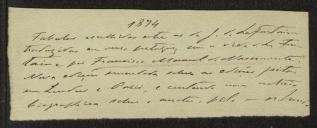 1874
Fabulas escolhidas entre as de J. de Lafontaine
traduzidas em verso portuguez com a vida do Fon
taine por Francisco Manuel do Nascimento
Nova edição emendada sobre as edições feitas
em Londres e Paris, e contendo uma noticia
biographica sobre o auctor, pelo